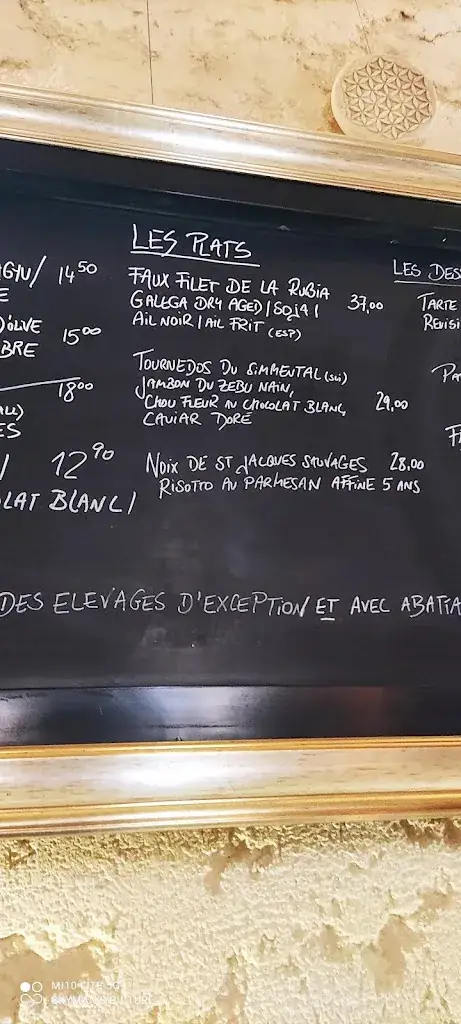 AGYU/ 14.50
E
D'OLIVE
BRE 15.00
18.00
ALL)
ES
/ 12.90
OLAT BLANC/
LES PLATS
FAUX FILET DE LA RUBIA
GALLEGA DRY AGED/SOJA/ 37,00
AIL NOIR/AIL FRIT (ESP)
TOURNEDOS DU SIMMENTAL
JAMBON DU ZEBU NAIN,
CHOU FLEUR AU CHOCOLAT BLANC, 29,00
CAVIAR DORÉ
NOIX DE ST JACQUES SAUVAGES 28,00
RISOTTO AU PARMESAN AFFINE 5 ANS
LES DES
TARTE
REVISI
PA
F
DES ELEVAGES D'EXCEPTION ET AVEC ABATTA
MI 10 LITE 5G